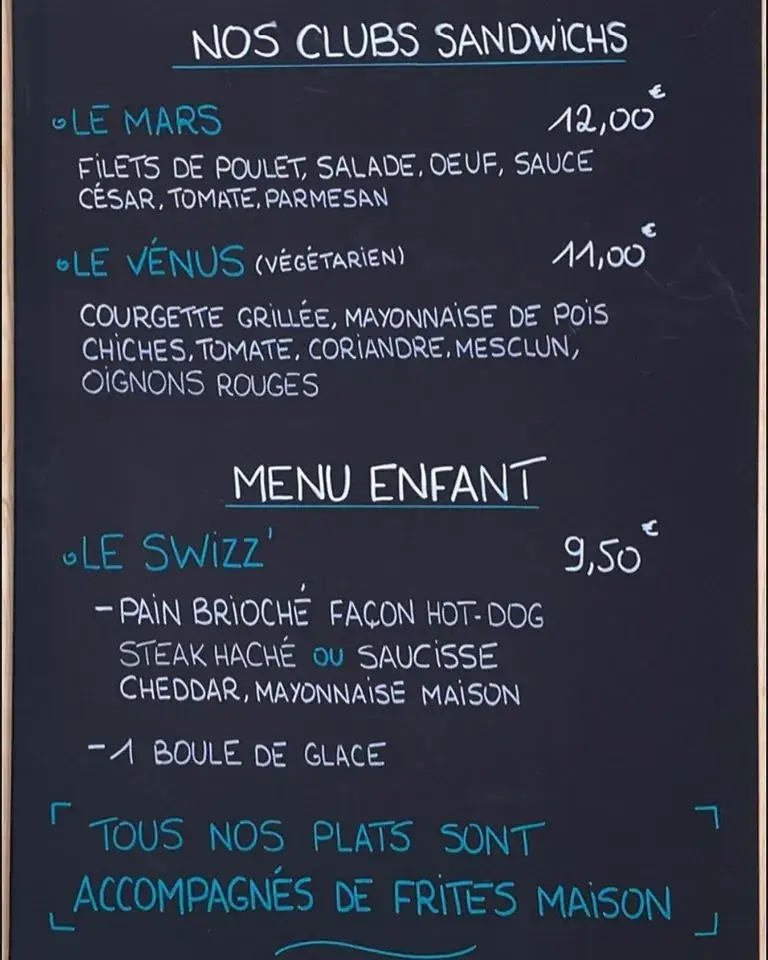 NOS CLUBS SANDWICHS
LE MARS 12,00€
FILETS DE POULET, SALADE, OEUF, SAUCE
CÉSAR, TOMATE, PARMESAN
LE VÉNUS (VÉGÉTARIEN) 11,00€
COURGETTE GRILLÉE, MAYONNAISE DE POIS
CHICHES, TOMATE, CORIANDRE, MESCLUN,
OIGNONS ROUGES
MENU ENFANT
LE SWIZZ' 9,50€
- PAIN BRIOCHÉ FAÇON HOT-DOG
STEAK HACHÉ OU SAUCISSE
CHEDDAR, MAYONNAISE MAISON
- 1 BOULE DE GLACE
TOUS NOS PLATS SONT
ACCOMPAGNÉS DE FRITES MAISON